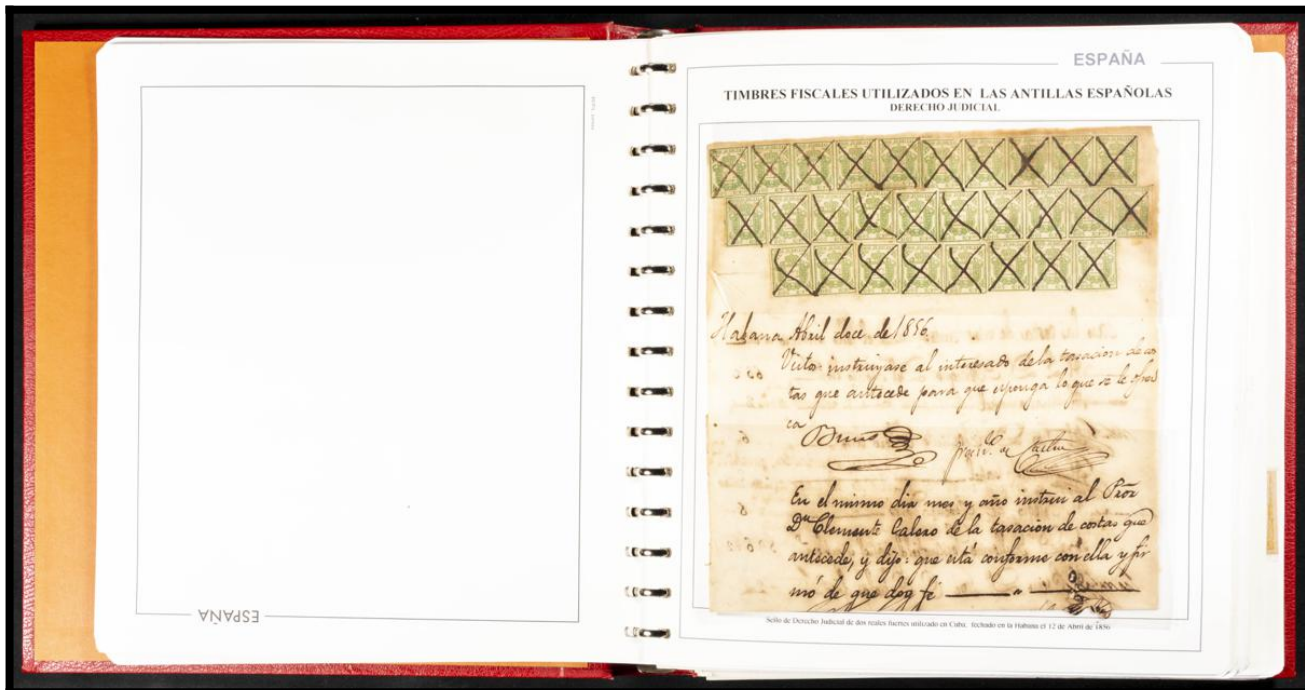 ESPAÑA
ESPAÑA
TIMBRES FISCALES UTILIZADOS EN LAS ANTILLAS ESPAÑOLAS
DERECHO JUDICIAL
Habana Abril doce de 1856
Vistos instruyase al interesado de la tasacion de cos
tas que antecede para que esponga lo que se le ofrez
ca
En el mismo dia mes y año instrui al Pror
Dn Clemente Calero de la tasacion de costas que
antecede, y dijo: que está conforme con ella y fir
mó de que doy fé
Sello de Derecho Judicial de dos reales fuertes utilizado en Cuba, fechado en la Habana el 12 de Abril de 1856